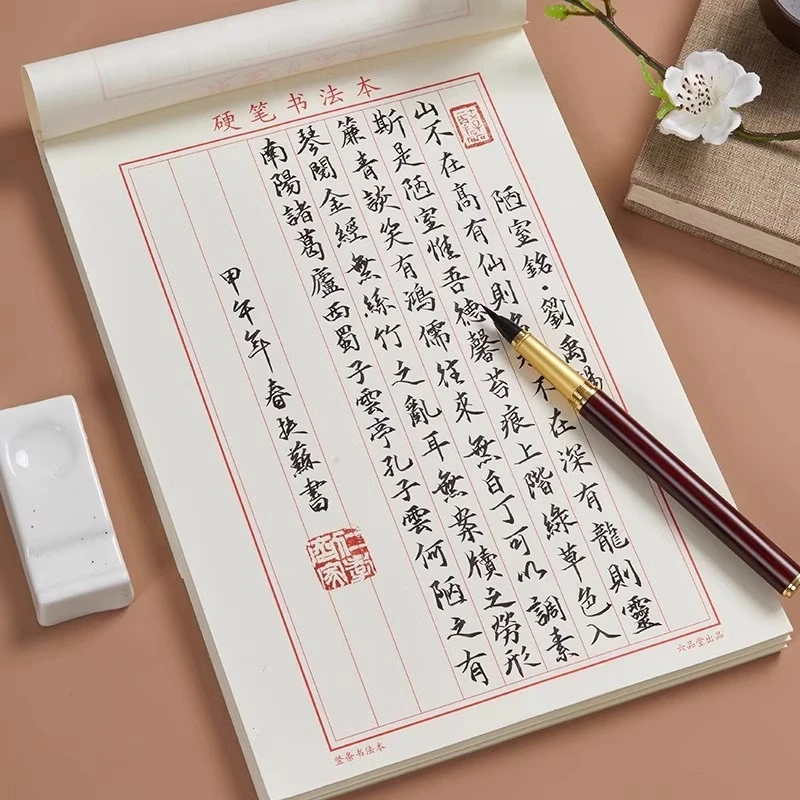 硬笔书法本
陋室銘·劉禹
山不在髙有仙則不在深有龍則靈
斯是陋室惟吾德馨苔痕上階綠草色入
簾青談笑有鴻儒往來無白丁可以調素
琴閱金經無絲竹之亂耳無案牘之勞形
南陽諸葛廬西蜀子雲亭孔子雲何陋之有
甲午年春扶蘇書
六品堂出品
竖条书法本